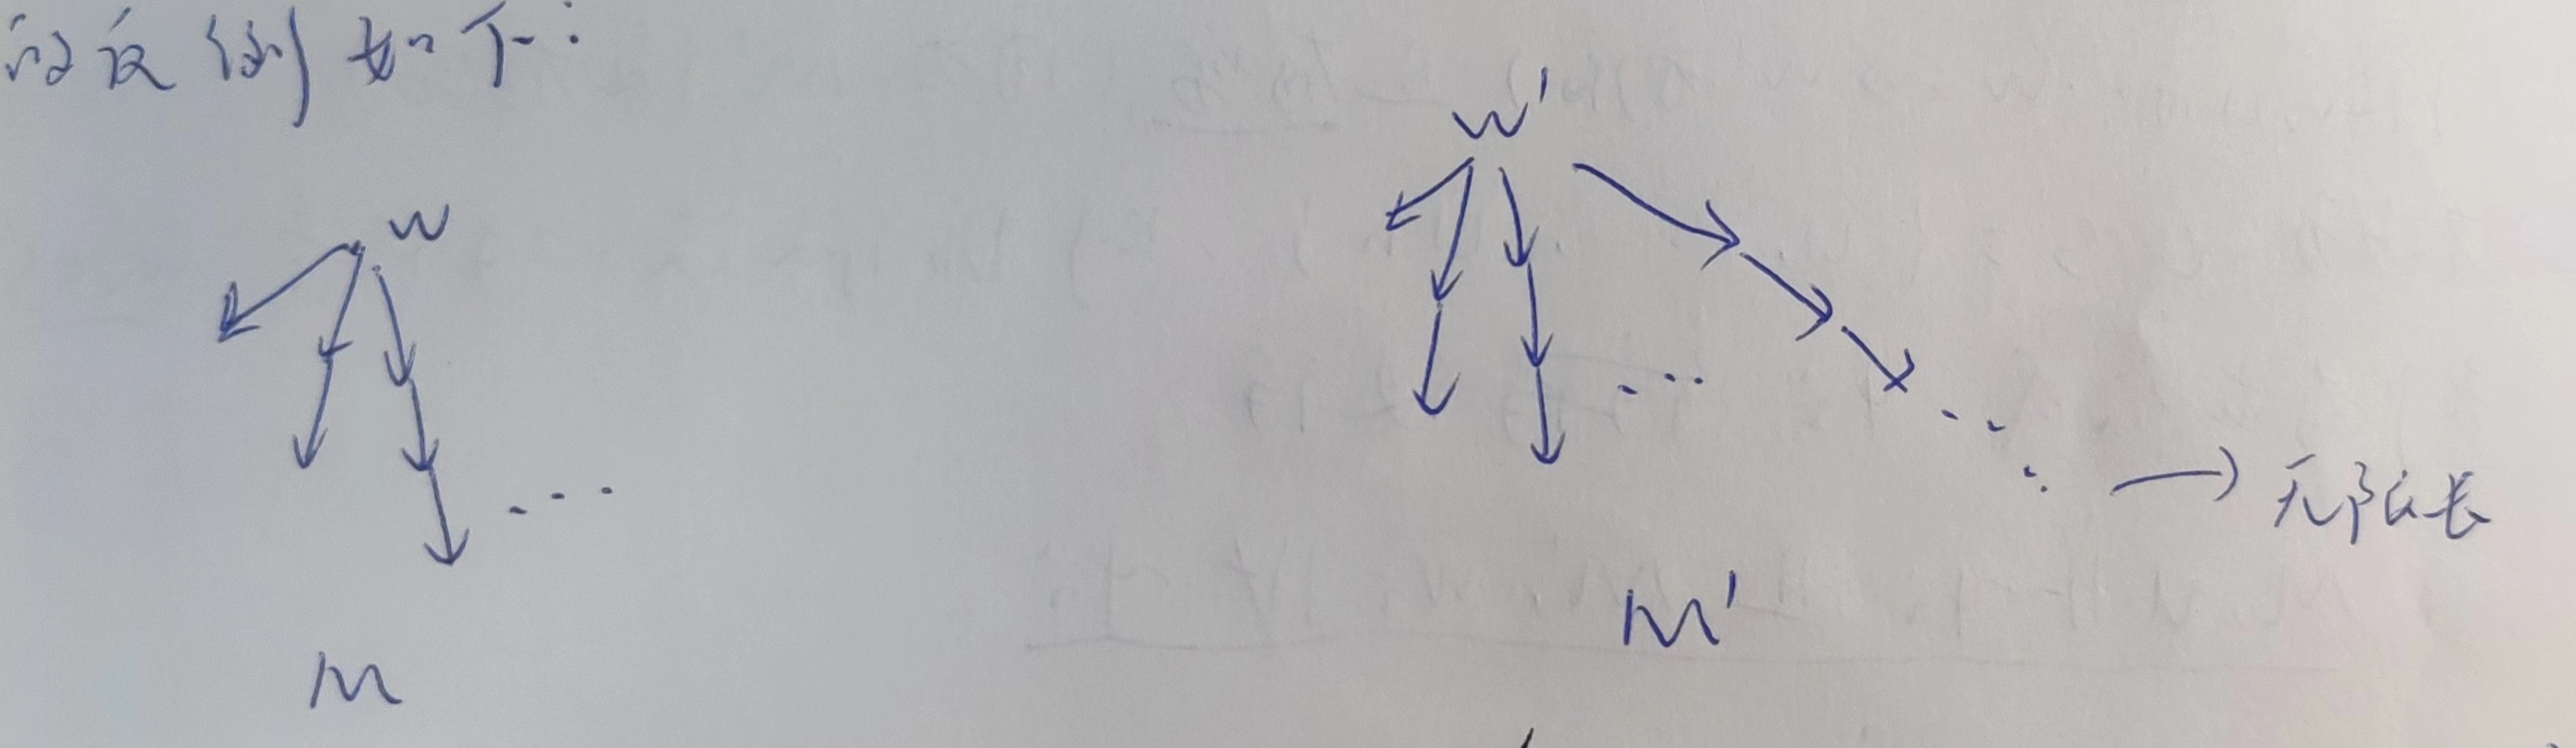 的反例如下:
w'
w
...
...
无限长
M'
M